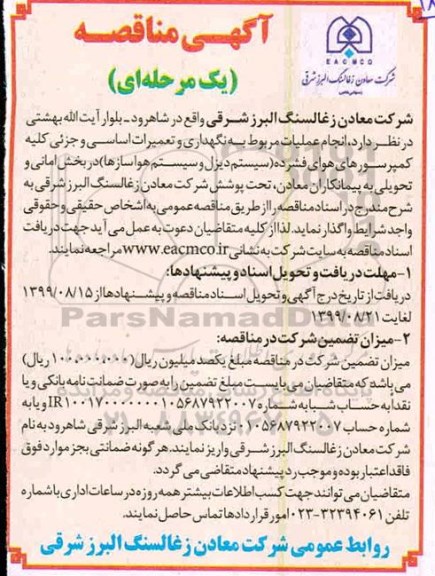 آگهـی مناقصـه
(یک مرحله‌ای)
EACMCO
شرکت معادن زغالسنگ البرز شرقی
شرکت معادن زغالسنگ البرز شرقی واقع در شاهرود - بلوار آیت الله بهشتی
در نظر دارد، انجام عملیات مربوط به نگهداری و تعمیرات اساسی و جزئی کلیه
کمپرسورهای هوای فشرده (سیستم دیزل و سیستم هواسازها) در بخش امانی و
تحویلی به پیمانکاران معادن، تحت پوشش شرکت معادن زغالسنگ البرز شرقی به
شرح مندرج در اسناد مناقصه، را از طریق مناقصه عمومی به اشخاص حقیقی و حقوقی
واجد شرایط واگذار نماید. لذا از کلیه متقاضیان دعوت به عمل می آید جهت دریافت
اسناد مناقصه به سایت شرکت به نشانی www.eacmco.ir مراجعه نمایند.
۱- مهلت دریافت و تحویل اسناد و پیشنهادها:
دریافت از تاریخ درج آگهی و تحویل اسناد مناقصه و پیشنهادها از ۱۳۹۹/۰۸/۱۵
لغایت ۱۳۹۹/۰۸/۲۱
ParsNamadData
۲- میزان تضمین شرکت در مناقصه:
میزان تضمین شرکت در مناقصه مبلغ یکصد میلیون ریال (۱۰۰.۰۰۰.۰۰۰ ریال)
می باشد که متقاضیان می بایست مبلغ تضمین را به صورت ضمانت نامه بانکی و یا
نقدا به حساب شبا به شماره
شماره حساب ۰۱۰۵۶۸۷۹۲۲۰۰۷ نزد بانک ملی شعبه البرز شرقی شاهرود به نام
شرکت معادن زغالسنگ البرز شرقی واریز نمایند. هر گونه ضمانتی بجز موارد فوق
فاقد اعتبار بوده و موجب رد پیشنهاد متقاضی می گردد.
متقاضیان می توانند جهت کسب اطلاعات بیشتر همه روزه در ساعات اداری با شماره
تلفن ۳۲۳۹۴۰۶۱-۰۲۳ امور قراردادها تماس حاصل نمایند.
روابط عمومی شرکت معادن زغالسنگ البرز شرقی